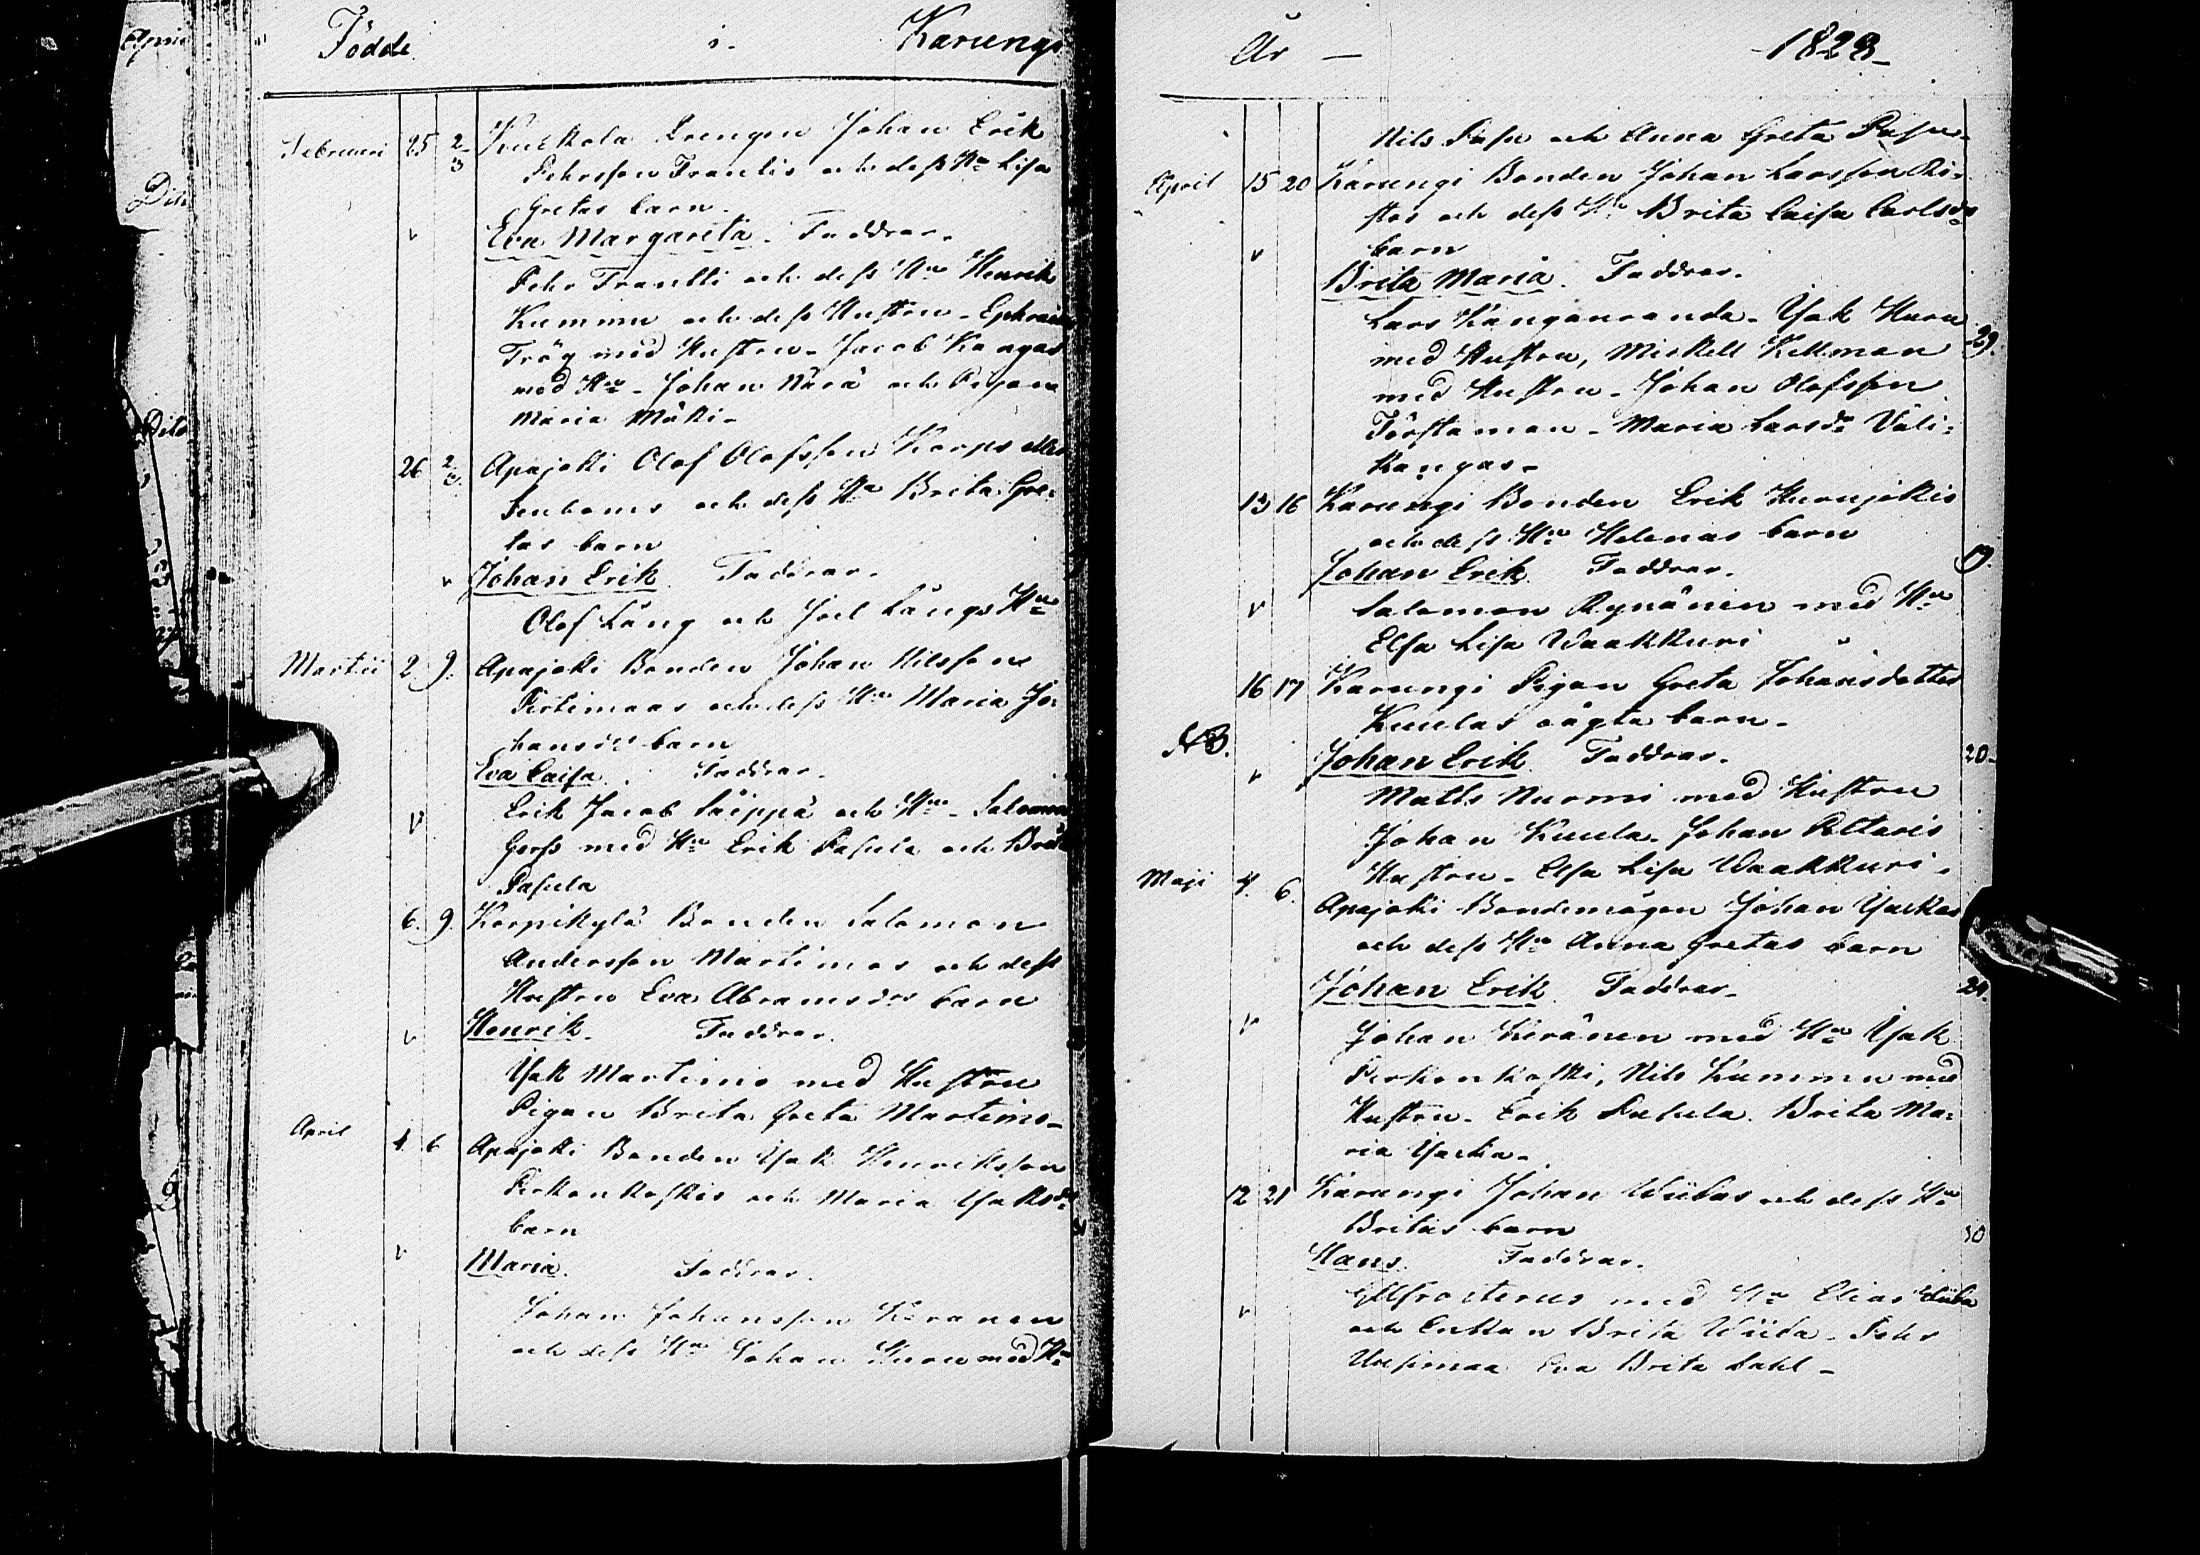 Födde i Karungi
Februari 25 2/3 Kuckola Drengen Johan Erik
Pehrsson Frantis och dess Hu Lisa
Gretas barn
Eva Margareta. Faddrar.
Pehr Frantti och dess Hu Henrik
Kummu och dess Hustru - Ephraim
Trög med Hustru - Jacob Kangas
med Hu - Johan Närä och Pigan
Maria Mäki -
26 2/3 Apajoki Olof Olofsson Korps eller
och dess Hu Brita Gre-
tas barn
Johan Erik. Faddrar.
Olof Lång och Joel Långs Hu
Martii 2 9. Apajoki Bonden Johan Nilsson
Pertimaas och dess Hu Maria Jo-
hansdr barn
Eva Caisa. Faddrar.
Erik Jacob Säippä och Hu - Salomon
med Hu Erik Pasula och Brita
Pasula
6. 9. Korpikylä Bonden Salomon
Andersson Martimos och dess
Hustru Eva Abramsdrs barn
Henrik. Faddrar.
Isak Martimo med Hustru
Pigan Brita Greta Martimo -
April 4 6 Apajoki Bonden Isak Henriksson
Pirkonkoskis och Maria Isaksdr
barn
Maria. Faddrar.
Johan Johansson Keränen
och dess Hu Johan Huru med Hu
År - 1823 -
Nils och Anna Greta
April 15 20 Karungi Bonden Johan Larsson Ris-
tos och dess Hu Brita Caisa Carlsdr
barn
Brita Maria. Faddrar.
Lars Kanganranda - Isak Huru 29.
med Hustru, Mickell Kellman
med Hustru - Johan Olofsson
Törstaman - Maria Larsdr Väli-
kangas -
13 16 Karungi Bonden Erik Hurujokis
och dess Hu Helenas barn
Johan Erik. Faddrar. 19.
Salomon Rynänen med Hu
Elsa Lisa Waakkuri
16 17 Karungi Pigan Greta Johansdotter
Kuulas oägta barn -
NB. Johan Erik. Faddrar. 20 -
Matts Nurmi med Hustru
Johan Kuula - Johan Pettaris
Hustru - Elsa Lisa Waakkuri -
Maji 4. 6. Apajoki Bondemågen Johan Yackas
och dess Hu Anna Gretas barn
Johan Erik. Faddrar - 24.
Johan Keränen med Hu Isak
Pirkonkoski, Nils Kummu med
Hustru - Erik Pasula. Brita Ma-
ria Yacka -
12 21 Karungi Johan Wiidas och dess Hu
Britas barn 30
Hans. Faddrar.
med Hu Elias Wiida
och Enkan Brita Wiida - Pehr
Uusimaa Eva Brita Lahl -